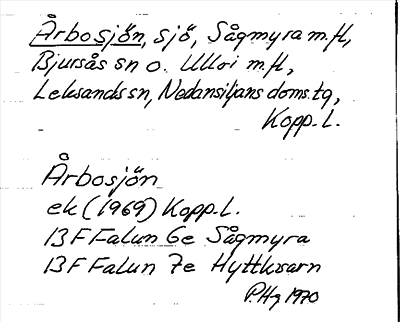 Årbosjön, sjö, Sågmyra m.fl,
Bjursås sn o. Ullvi m.fl,
Leksands sn, Nedansiljans doms.tg,
Kopp.l.
Årbosjön
ek (1969) Kopp.l.
13F Falun 6e Sågmyra
13F Falun 7e Hyttkvarn
P.Hg 1970